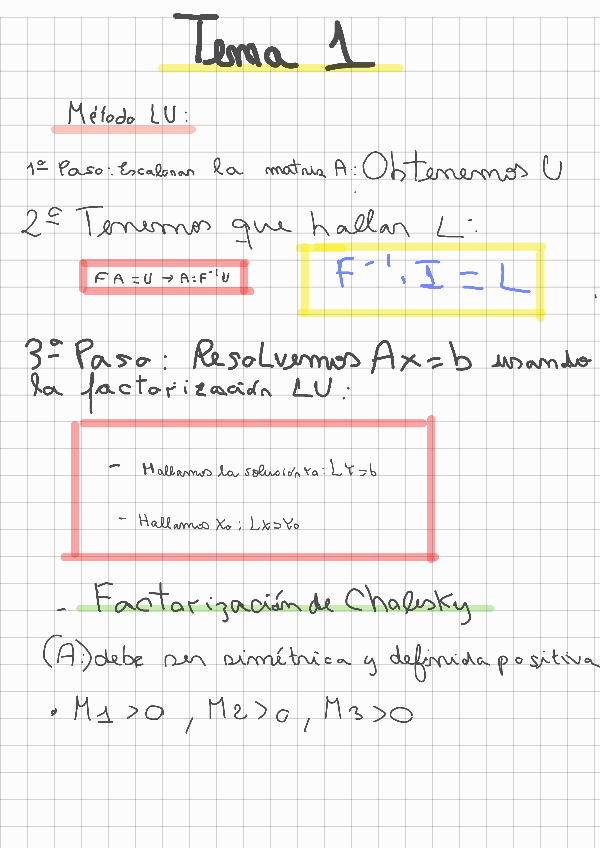 Tema 1
Método LU:
1º Paso: Escalonar la matriz A: Obtenemos U
2º Tenemos que hallar L:
FA = U → A = F⁻¹U
F⁻¹·I = L
3º Paso: Resolvemos Ax = b usando
la factorización LU:
- Hallamos la solución Yo: LY = b
- Hallamos Xo: LX = Yo
- Factorización de Cholesky
(A:) debe ser simétrica y definida positiva
• M1 > 0, M2 > 0, M3 > 0